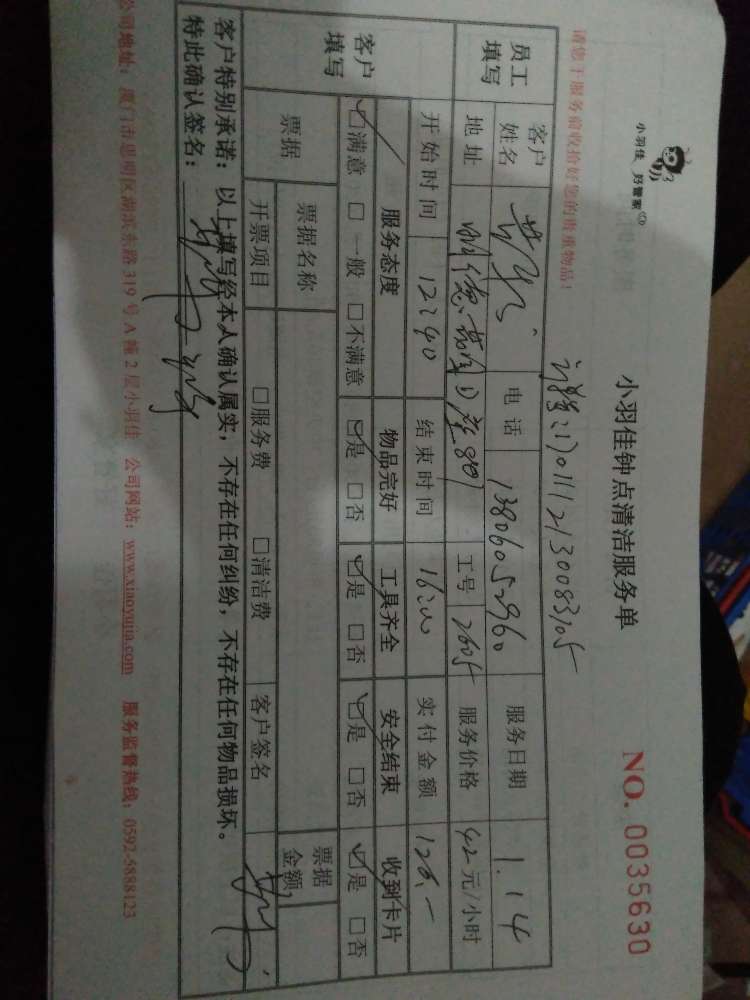 小羽佳 好管家
小羽佳钟点清洁服务单
NO. 0035630
请您于服务前收拾好您的贵重物品！
员工填写
客户姓名
电话 13806052960
服务日期 1.14
地址
工号 2605
服务价格 42元/小时
开始时间 12:40
结束时间 16:00
实付金额 126.-
客户填写
服务态度 物品完好 工具齐全 安全结束 收到卡片
☑满意 □一般 □不满意 ☑是 □否 ☑是 □否 ☑是 □否 ☑是 □否
票据
票据名称
票据金额
开票项目 □服务费 □清洁费 客户签名
客户特别承诺：以上填写经本人确认属实，不存在任何纠纷，不存在任何物品损坏。
特此确认签名：
公司地址：厦门市思明区湖滨东路319号A幢2层小羽佳 公司网站：www.xiaoyujia.com 服务监督热线：0592-5888123